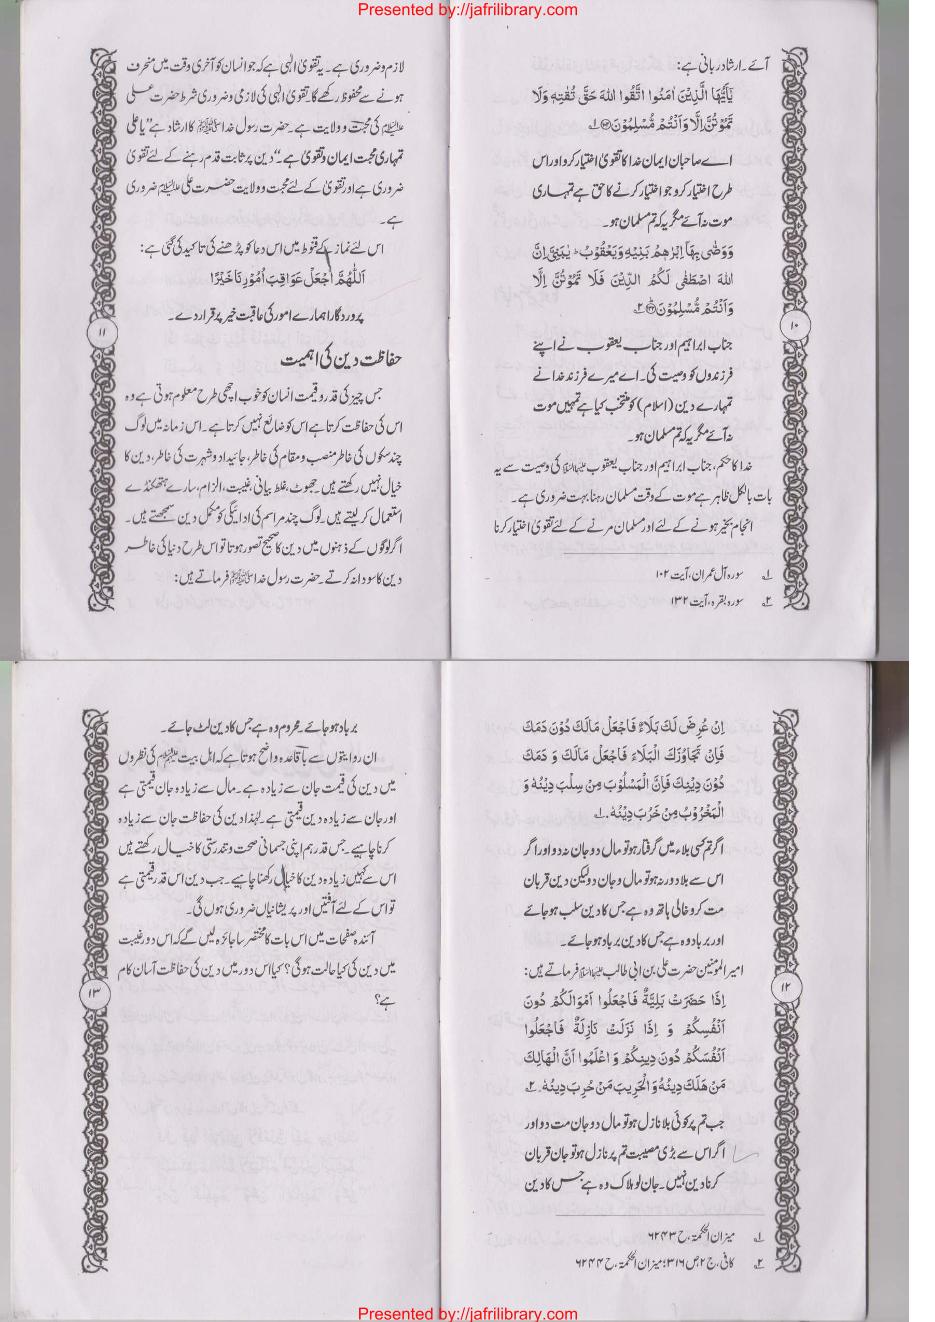 Presented by://jafrilibrary.com
آئے۔ ارشاد ربانی ہے:
يٰٓاَيُّهَا الَّذِيْنَ اٰمَنُوا اتَّقُوا اللهَ حَقَّ تُقٰتِهٖ وَلَا
تَمُوْتُنَّ اِلَّا وَاَنْتُمْ مُّسْلِمُوْنَ ﴿۱۰۲﴾ ۱؎
اے صاحبان ایمان خدا کا تقویٰ اختیار کرو اور اس
طرح اختیار کرو جو اختیار کرنے کا حق ہے تمہاری
موت نہ آئے مگر یہ کہ تم مسلمان ہو۔
وَوَصّٰى بِهَآ اِبْرٰهِمُ بَنِيْهِ وَيَعْقُوْبُ ۭ يٰبَنِيَّ اِنَّ
اللهَ اصْطَفٰى لَكُمُ الدِّيْنَ فَلَا تَمُوْتُنَّ اِلَّا
وَاَنْتُمْ مُّسْلِمُوْنَ ﴿۱۳۲﴾ ۲؎
جناب ابراہیم اور جناب یعقوب نے اپنے
فرزندوں کو وصیت کی۔ اے میرے فرزند خدا نے
تمہارے دین (اسلام) کو منتخب کیا ہے تمہیں موت
نہ آئے مگر یہ کہ تم مسلمان ہو۔
خدا کا حکم، جناب ابراہیم اور جناب یعقوب علیہما السلام کی وصیت سے یہ
بات بالکل ظاہر ہے موت کے وقت مسلمان رہنا بہت ضروری ہے۔
انجام بخیر ہونے کے لئے اور مسلمان مرنے کے لئے تقویٰ اختیار کرنا
۱؎ سورہ آل عمران، آیت ۱۰۲
۲؎ سورہ بقرہ، آیت ۱۳۲
۱۰
لازم و ضروری ہے۔ یہ تقویٰ الٰہی ہے کہ جو انسان کو آخری وقت میں منحرف
ہونے سے محفوظ رکھے گا۔ تقویٰ الٰہی کی لازمی و ضروری شرط حضرت علی
علیہ السلام کی محبت و ولایت ہے۔ حضرت رسول خدا ﷺ کا ارشاد ہے "یا علی
تمہاری محبت ایمان و تقویٰ ہے۔" دین پر ثابت قدم رہنے کے لئے تقویٰ
ضروری ہے اور تقویٰ کے لئے محبت و ولایت حضرت علی علیہ السلام ضروری
ہے۔
اس لئے نماز کے قنوط میں اس دعا کو پڑھنے کی تاکید کی گئی ہے:
اَللّٰهُمَّ اجْعَلْ عَوَاقِبَ اُمُوْرِنَا خَيْرًا
پروردگارا ہمارے امور کی عاقبت خیر پر قرار دے۔
حفاظت دین کی اہمیت
جس چیز کی قدر و قیمت انسان کو خوب اچھی طرح معلوم ہوتی ہے وہ
اس کی حفاظت کرتا ہے اس کو ضائع نہیں کرتا ہے۔ اس زمانہ میں لوگ
چند سکوں کی خاطر منصب و مقام کی خاطر، جائیداد و شہرت کی خاطر، دین کا
خیال نہیں رکھتے ہیں۔ جھوٹ، غلط بیانی، غیبت، الزام، سارے ہتھکنڈے
استعمال کر لیتے ہیں۔ لوگ چند مراسم کی ادائیگی کو مکمل دین سمجھتے ہیں۔
اگر لوگوں کے ذہنوں میں دین کا صحیح تصور ہوتا تو اس طرح دنیا کی خاطر
دین کا سودا نہ کرتے۔ حضرت رسول خدا ﷺ فرماتے ہیں:
۱۱
اِنْ عُرِضَ لَكَ بَلَاءٌ فَاجْعَلْ مَالَكَ دُوْنَ دَمِكَ
فَاِنْ تَجَاوَزَكَ الْبَلَاءُ فَاجْعَلْ مَالَكَ وَ دَمَكَ
دُوْنَ دِيْنِكَ فَاِنَّ الْمَسْلُوْبَ مِنْ سَلْبِ دِيْنُهٗ وَ
الْمَخْرُوْبُ مِنْ خَرُبَ دِيْنُهٗ۔ ۱؎
اگر تم کسی بلاء میں گرفتار ہو تو مال دو جان نہ دو اور اگر
اس سے بلا دور نہ ہو تو مال و جان دو لیکن دین قربان
مت کرو خالی ہاتھ وہ ہے جس کا دین سلب ہو جائے
اور برباد وہ ہے جس کا دین برباد ہو جائے۔
امیر المومنین حضرت علی بن ابی طالب علیہ السلام فرماتے ہیں:
اِذَا حَضَرَتْ بَلِيَّةٌ فَاجْعَلُوا اَمْوَالَكُمْ دُوْنَ
اَنْفُسِكُمْ وَ اِذَا نَزَلَتْ نَازِلَةٌ فَاجْعَلُوا
اَنْفُسَكُمْ دُوْنَ دِيْنِكُمْ وَ اعْلَمُوا اَنَّ الْهَالِكَ
مَنْ هَلَكَ دِيْنُهٗ وَ الْحَرِيبَ مَنْ حُرِبَ دِيْنُهٗ۔ ۲؎
جب تم پر کوئی بلا نازل ہو تو مال دو جان مت دو اور
اگر اس سے بڑی مصیبت تم پر نازل ہو تو جان قربان
کرنا دین نہیں۔ جان لو ہلاک وہ ہے جس کا دین
۱؎ میزان الحکمۃ، ح ۶۲۴۳
۲؎ کافی، ج ۲ ص ۳۱۶؛ میزان الحکمۃ، ح ۶۲۴۴
۱۲
برباد ہو جائے۔ محروم وہ ہے جس کا دین لٹ جائے۔
ان روایتوں سے باقاعدہ واضح ہوتا ہے کہ اہل بیت علیہم السلام کی نظروں
میں دین کی قیمت جان سے زیادہ ہے۔ مال سے زیادہ جان قیمتی ہے
اور جان سے زیادہ دین قیمتی ہے۔ لہٰذا دین کی حفاظت جان سے زیادہ
کرنا چاہیے۔ جس قدر ہم اپنی جسمانی صحت و تندرستی کا خیال رکھتے ہیں
اس سے کہیں زیادہ دین کا خیال رکھنا چاہیے۔ جب دین اس قدر قیمتی ہے
تو اس کے لئے آفتیں اور پریشانیاں ضروری ہوں گی۔
آئندہ صفحات میں اس بات کا مختصر سا جائزہ لیں گے کہ اس دور غیبت
میں دین کی کیا حالت ہوگی؟ کیا اس دور میں دین کی حفاظت آسان کام
ہے؟
۱۳
Presented by://jafrilibrary.com